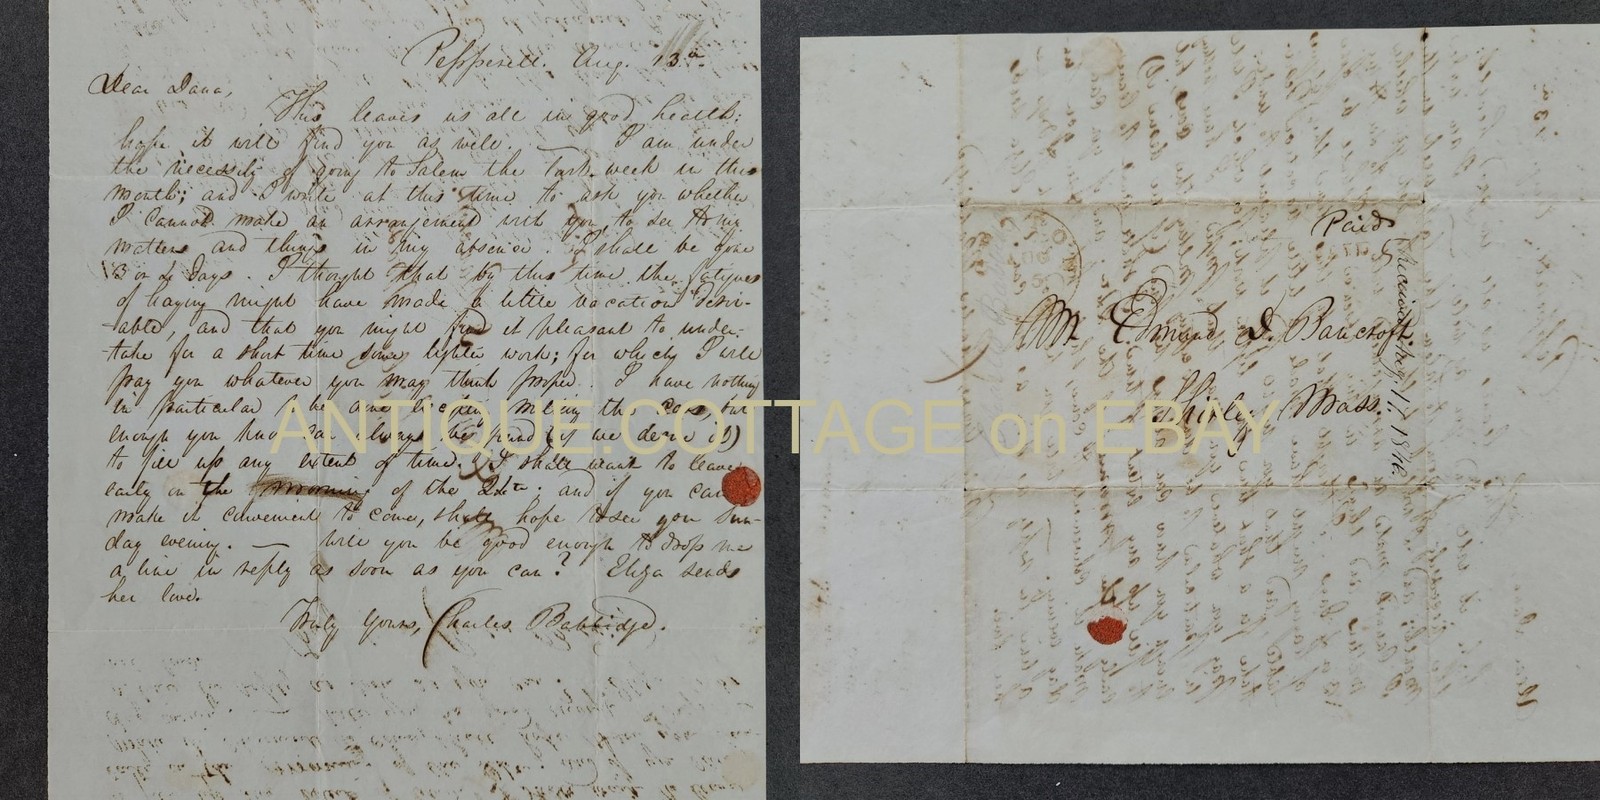 Pepperell. Aug. 13th
Dear Dana,
This leaves us all in good health;
hope it will find you as well. — I am under
the necessity of going to Salem the last week in this
month; and I write at this time to ask you whether
I cannot make an arrangement with you, to see to my
matters and things in my absence. I shall be gone
3 or 4 days. I thought that by this time the fatigues
of haying might have made a little vacation desir-
-able, and that you might find it pleasant to under-
-take for a short time some lighter work; for which I will
pay you whatever you may think proper. I have nothing
in particular to be done except milking the cow, but
enough you know can always be found (if we desire it)
to fill up any extent of time. I shall want to leave
early on the morning of the 24th; and if you can
make it convenient to come, shall hope to see you Sun-
day evening. — Will you be good enough to drop me
a line in reply as soon as you can? Eliza sends
her love.
Truly Yours, Charles Babbidge.
Paid
Mr. Edmund D. Bancroft
Shirley Mass.
Received Aug. 1846
ANTIQUE.COTTAGE on EBAY